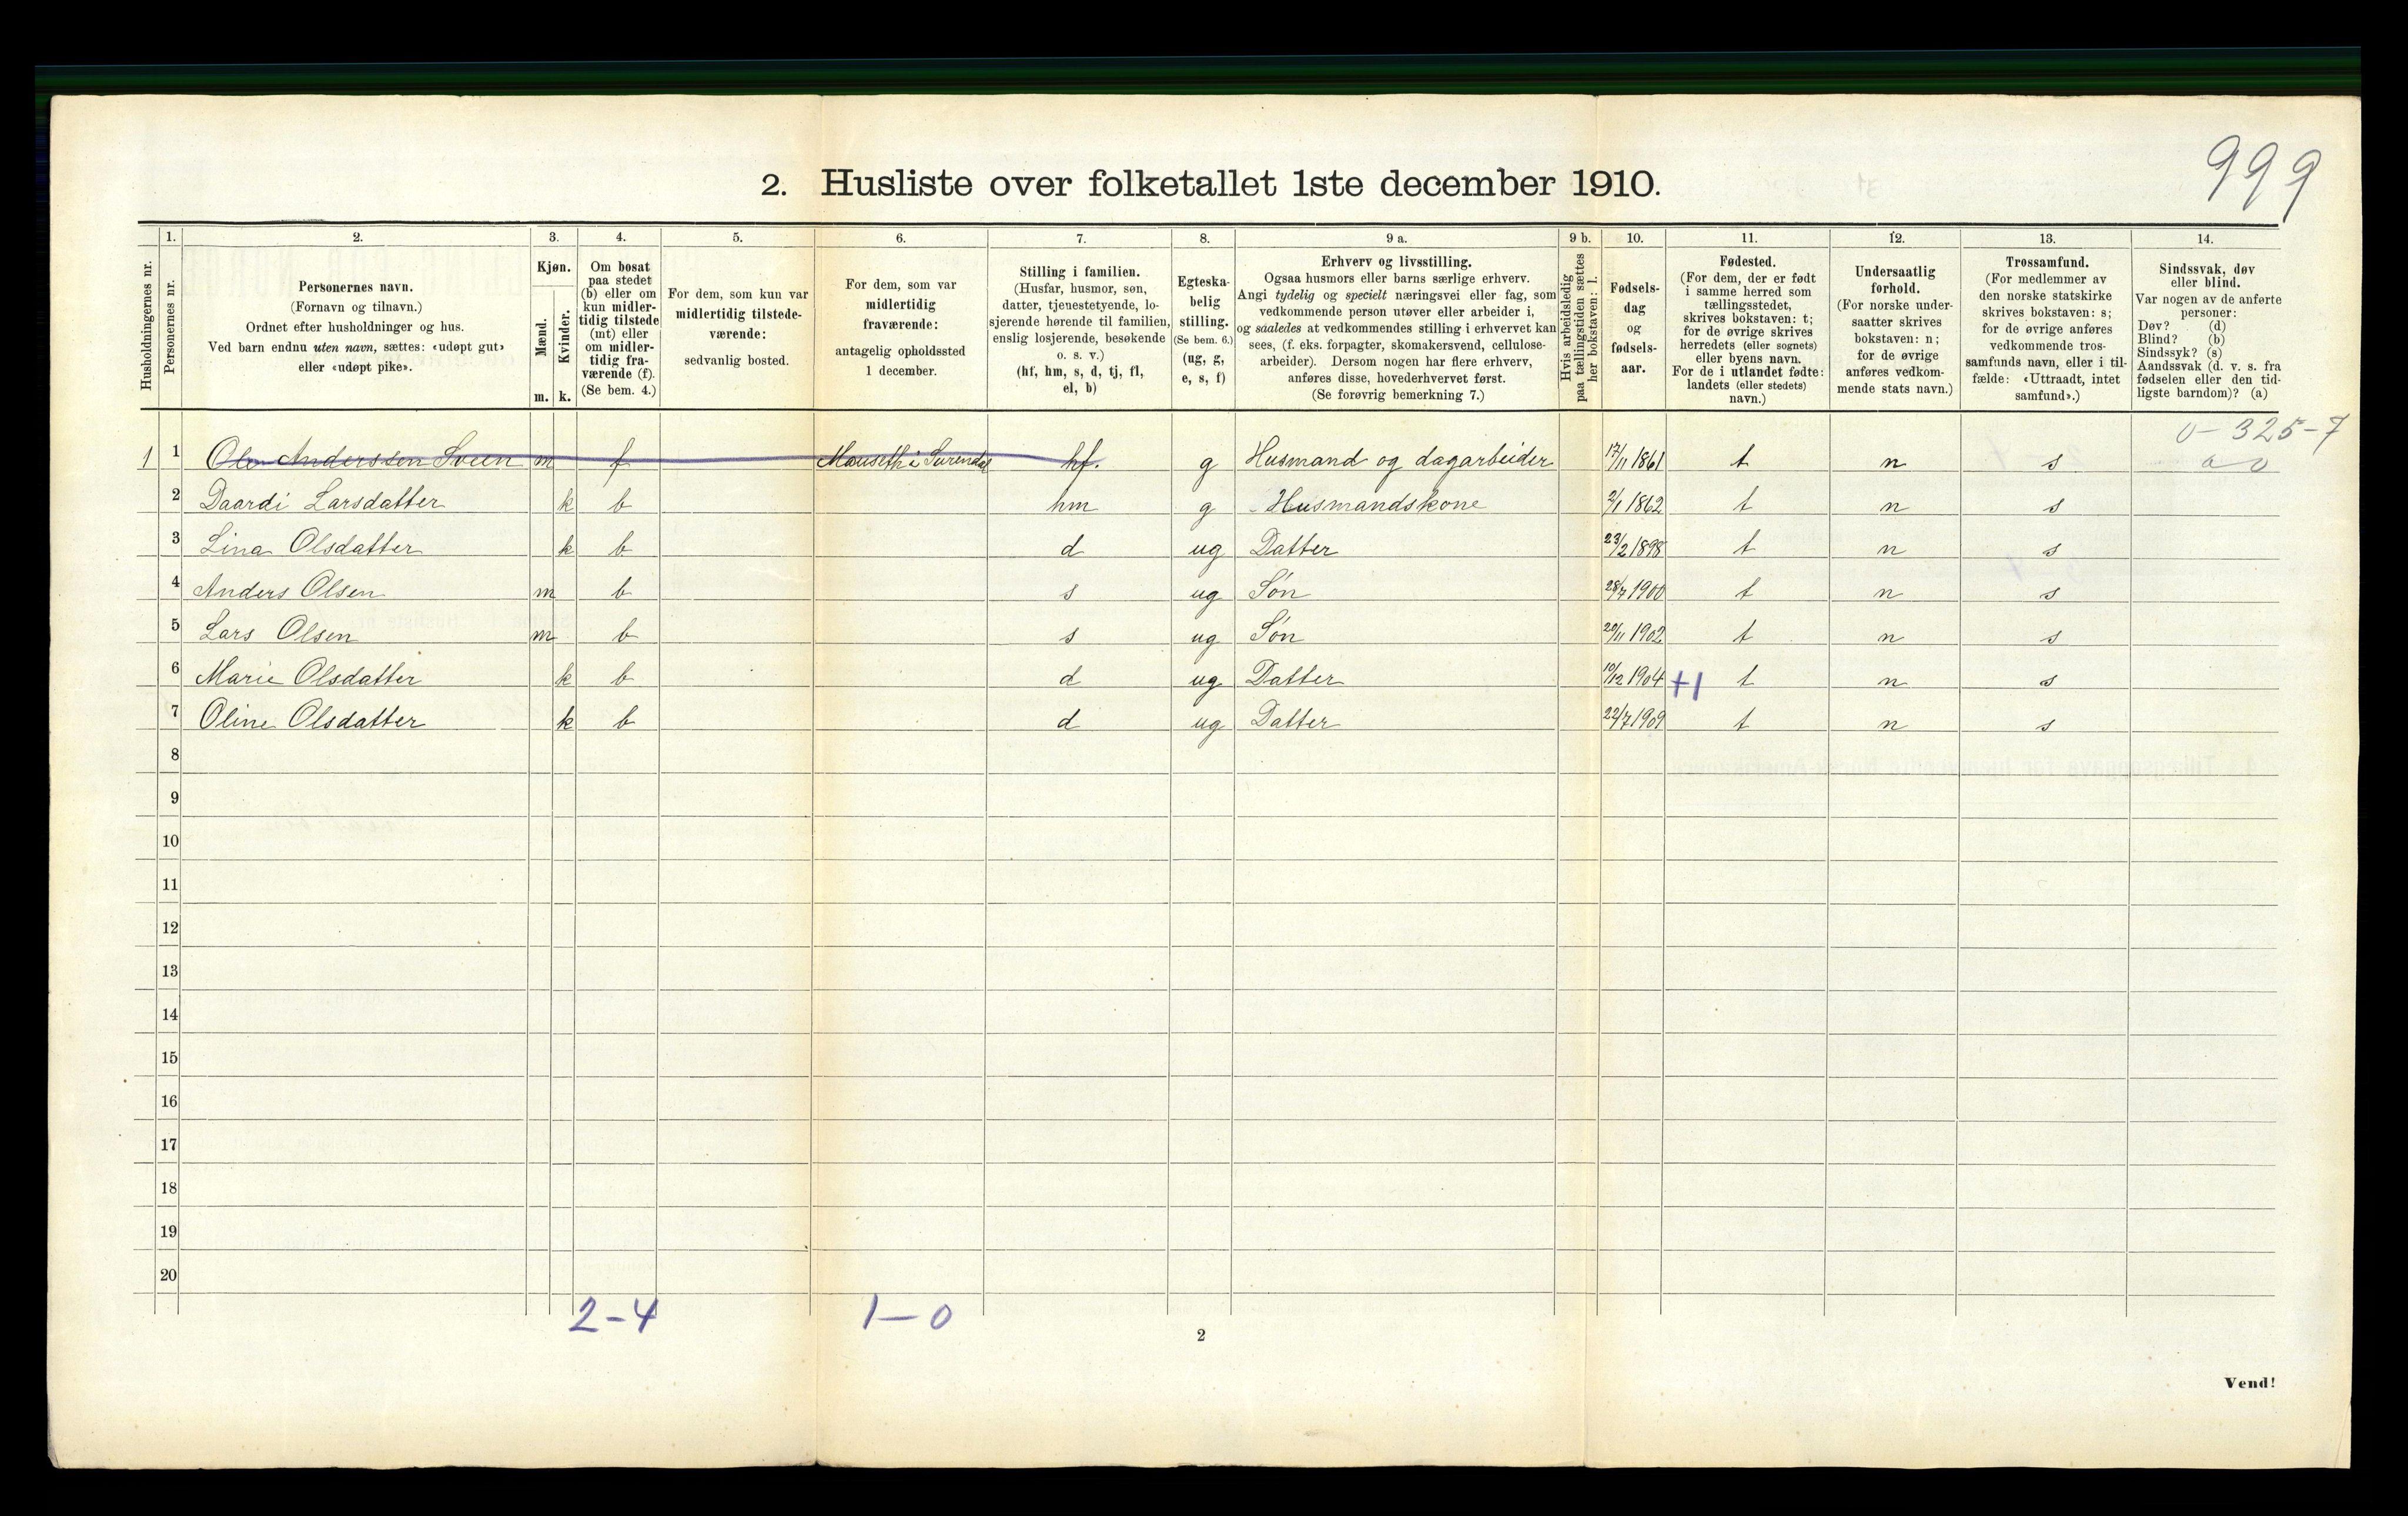 999
2. Husliste over folketallet 1ste december 1910.
Husholdningernes nr.
1.
Personernes nr.
2.
Personernes navn.
(Fornavn og tilnavn.)
Ordnet efter husholdninger og hus.
Ved barn endnu uten navn, sættes: «udøpt gut»
eller «udøpt pike».
3.
Kjøn.
Mænd.
Kvinder.
m. k.
4.
Om bosat
paa stedet
(b) eller om
kun midler-
tidig tilstede
(mt) eller
om midler-
tidig fra-
værende (f).
(Se bem. 4.)
5.
For dem, som kun var
midlertidig tilstede-
værende:
sedvanlig bosted.
6.
For dem, som var
midlertidig
fraværende:
antagelig opholdssted
1 december.
7.
Stilling i familien.
(Husfar, husmor, søn,
datter, tjenestetyende, lo-
sjerende hørende til familien,
enslig losjerende, besøkende
o. s. v.)
(hf, hm, s, d, tj, fl,
el, b)
8.
Egteska-
belig
stilling.
(Se bem. 6.)
(ug, g,
e, s, f)
9 a.
Erhverv og livsstilling.
Ogsaa husmors eller barns særlige erhverv.
Angi tydelig og specielt næringsvei eller fag, som
vedkommende person utøver eller arbeider i,
og saaledes at vedkommendes stilling i erhvervet kan
sees, (f. eks. forpagter, skomakersvend, cellulose-
arbeider). Dersom nogen har flere erhverv,
anføres disse, hovederhvervet først.
(Se forøvrig bemerkning 7.)
9 b.
Hvis arbeidsledig
paa tællingstiden sættes
her bokstaven: l.
10.
Fødsels-
dag
og
fødsels-
aar.
11.
Fødested.
(For dem, der er født
i samme herred som
tællingsstedet,
skrives bokstaven: t;
for de øvrige skrives
herredets (eller sognets)
eller byens navn.
For de i utlandet fødte:
landets (eller stedets)
navn.)
12.
Undersaatlig
forhold.
(For norske under-
saatter skrives
bokstaven: n;
for de øvrige
anføres vedkom-
mende stats navn.)
13.
Trossamfund.
(For medlemmer av
den norske statskirke
skrives bokstaven: s;
for de øvrige anføres
vedkommende tros-
samfunds navn, eller i til-
fælde: «Uttraadt, intet
samfund».)
14.
Sindssvak, døv
eller blind.
Var nogen av de anførte
personer:
Døv? (d)
Blind? (b)
Sindssyk? (s)
Aandssvak (d. v. s. fra
fødselen eller den tid-
ligste barndom)? (a)
0-325-7
1 1 Ole Anderssen Sveen m f Mauseth i Surendal hf. g Husmand og dagarbeider 17/11 1861 t n s 0 0
2 Daardi Larsdatter k b hm g Husmandskone 2/1 1862 t n s
3 Lina Olsdatter k b d ug Datter 23/2 1898 t n s
4 Anders Olsen m b s ug Søn 28/7 1900 t n s
5 Lars Olsen m b s ug Søn 20/11 1902 t n s
6 Marie Olsdatter k b d ug Datter 10/12 1904 +1 t n s
7 Oline Olsdatter k b d ug Datter 22/7 1909 t n s
8
9
10
11
12
13
14
15
16
17
18
19
20
2-4 1-0
2
Vend!